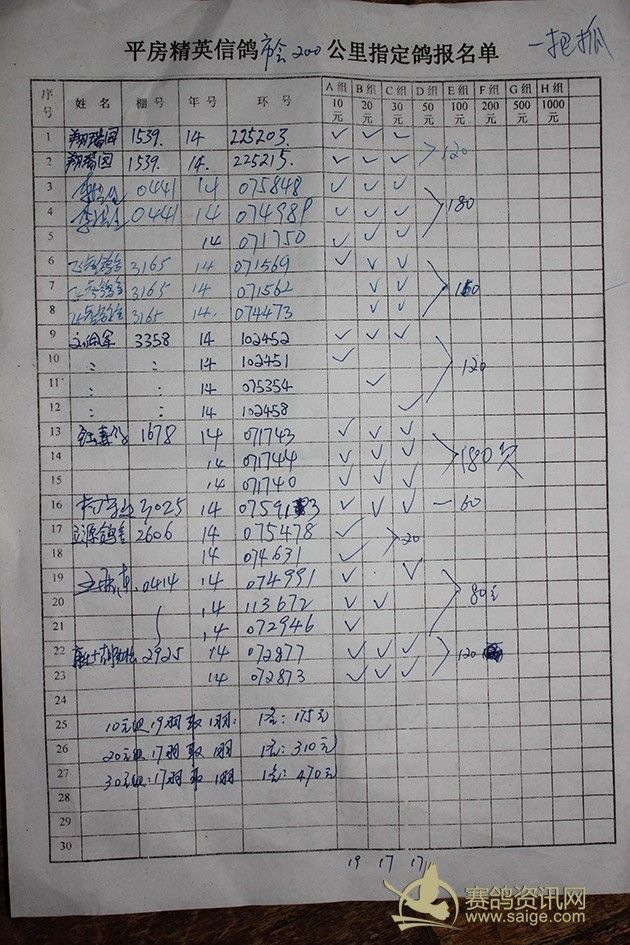 平房精英信鸽市会200公里指定鸽报名单 一把抓
序号 姓名 棚号 年号 环号 A组10元 B组20元 C组30元 D组50元 E组100元 F组200元 G组500元 H组1000元
1 翔瑞园 1539. 14 225203. ✓ ✓ ✓
2 翔瑞园 1539. 14. 225215. ✓ ✓ ✓ 120
3 0441 14 075848 ✓ ✓ ✓
4 0441 14 074989 ✓ ✓ ✓ 180
5 14 071750 ✓ ✓ ✓
6 3165 14 071569 ✓ ✓ ✓
7 3165 14 071562 ✓ ✓ 160
8 3165 14. 074473 ✓ ✓
9 3358 14 102452 ✓ ✓ ✓
10 : : 14 102451 ✓ 120
11 : : 14 075354 ✓
12 : : 14 102458 ✓
13 1678 14 071743 ✓ ✓ ✓
14 14 071744 ✓ ✓ ✓ 180欠
15 14 071740 ✓ ✓ ✓
16 3025 14 ✓ ✓ ✓ — 60
17 立源鸽舍 2606 14 075478 ✓ 20
18 14 074631 ✓
19 0414 14 074991 ✓ ✓
20 14 113672 ✓ ✓ 80元
21 14 072946 ✓
22 2925 14 072877 ✓ ✓ ✓ 120
23 14 072873 ✓ ✓ ✓
24
25 10元组19羽取1羽: 1名: 175元
26 20元组17羽取1羽 1名: 310元
27 30元组:17羽取1羽 1名: 470元
28
29
30
19 17 17
赛鸽资讯网
www.saige.com